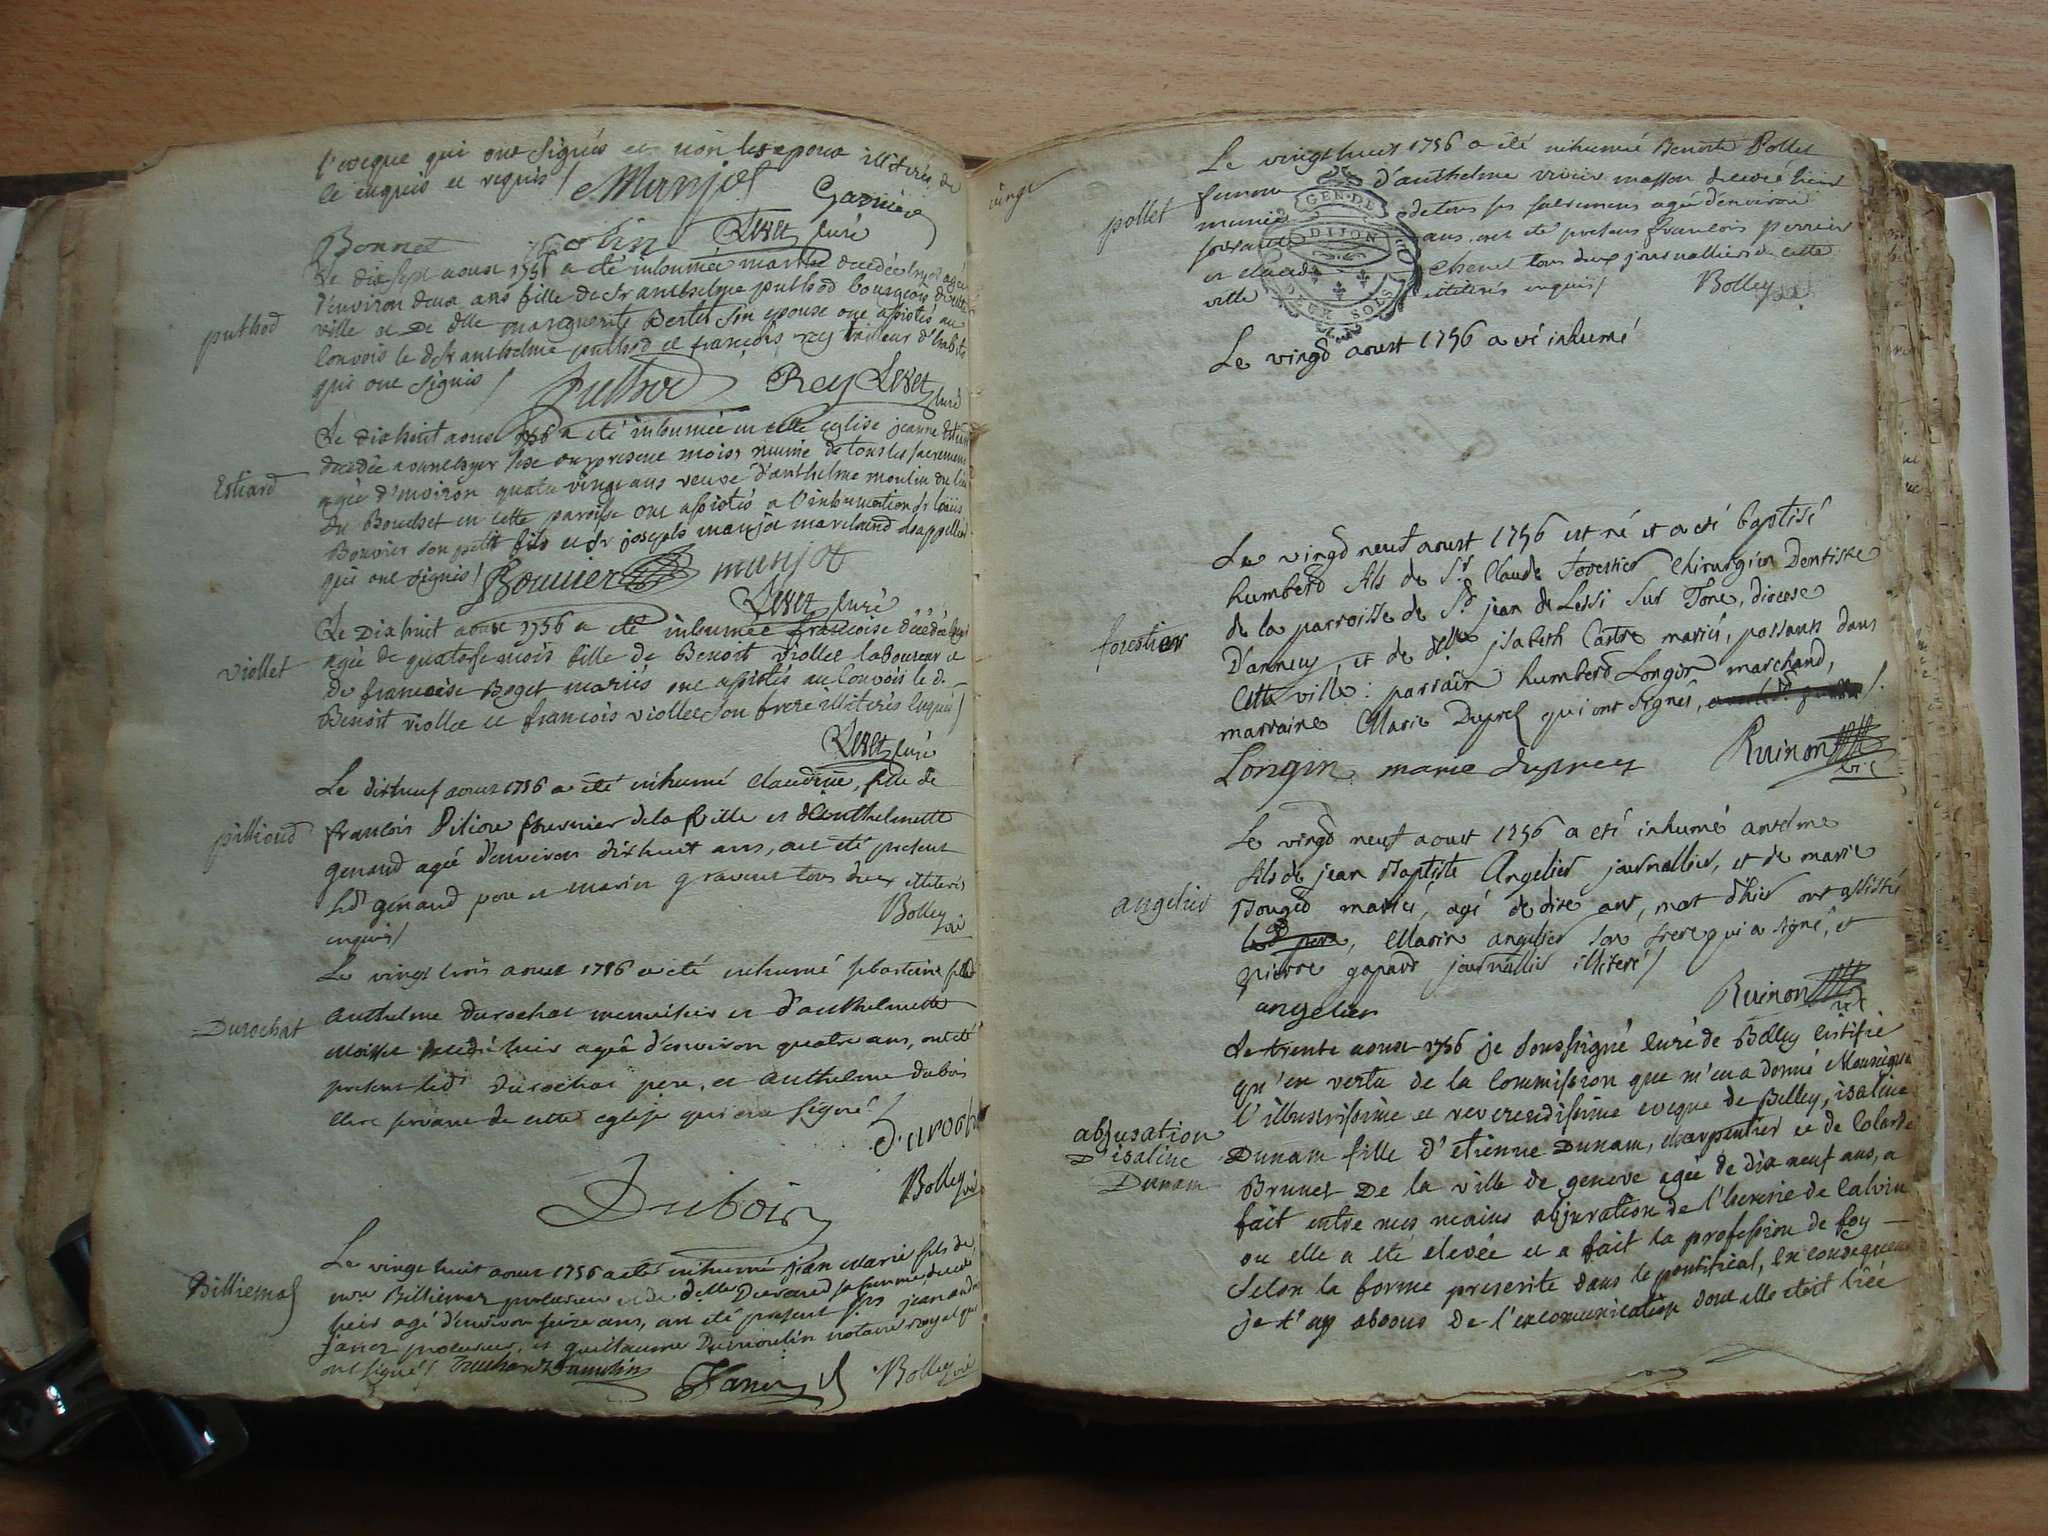 l'eveque qui ont signés et non les epoux illiterés de
ce enquis et requis / Manjot Garnier
Bonnet Robin Revet curé
Le dix sept aoust 1756 a été inhumée decedée agée
puthod
d'environ deux ans fille de Sr anthelme puthod bourgeois
ville et De dlle marguerite Bertet son epouse ont assistés au
Convois le d. Sr anthelme puthod et françois rey tailleur d'habits
qui ont signés / puthod Rey Revet curé
Le dixhuit aoust 1756 a été inhumée en cette eglise jeanne
Estiard
decedée munie de tous les sacremens
agée d'environ quatre vingt ans veuve d'anthelme moulin
du Bouchet en cette paroisse ont assistés a l'inhumation Sr louis
Bouvier son petit fils et Sr joseph manjot marchand drappellier
qui ont signés / Bouvier manjot
Revet curé
Le Dixhuit aoust 1756 a été inhumée francoise decedée
viollet
agée de quatorse mois fille de Benoit viollet laboureur et
de francoise Boget mariés ont assistés au Convois le d.
Benoit viollet et francois viollet son frere illiterés enquis /
Revet curé
Le dixneuf aoust 1756 a été inhumé claudine, fille de
pillioud
francois fournier de la ville et d'anthelmette
genand agée d'environ dixhuit ans, ont été present
led. genand pere et marin gravent tous deux illiterés
enquis / Bolley vic
Le vingt trois aoust 1756 a été inhumé
Durochat
Anthelme durochat menuisier et d'anthelmette
hier agée d'environ quatre ans, ont été
present led. durochat pere, et anthelme dubois
clerc servant de cette eglise qui ont signé / durochat
Dubois
Bolley vic
Le vingt huit aoust 1756 a été inhumé jean Marie fils de
Billiemas
procureur et de delle sa femme decedé
hier agé d'environ seize ans, ont été present jean
janer procureur, et guillaume Dumoulin notaire royal qui
ont signé / Dumoulin Janer Bolley vic
vingt
Le vingt huit 1756 a été inhumé Benoite Pollet
pollet
femme d'anthelme masson decedée hier
munie de tous ses sacremens agée d'environ
ans, ont été presens francois perrier
et claude Chenet tous deux journalliers de cette
ville illiterés enquis / Bolley vic
GEN. DE
DIJON
DEUX SOLS
Le vingd aoust 1756 a eté inhumé
Le vingd neuf aoust 1756 est né et a eté baptisé
humberd fils de Sr Claude forestier Chirurgien Dentiste
de la parroisse de St jean de Lessi Sur Tone, diocese
forestier
D'annecy, et de delle jsabeth Castre mariés, passants dans
Cette ville : parrain humberd Longin marchand,
marraine Marie Duprel qui ont signés, /.
Longin marie duprey Ruinon vic
Le vingd neuf aoust 1756 a eté inhumé anselme
fils de jean Baptiste Angelier journallier, et de marie
angelier
Bouged mariés, agé de dixe ans, mort d'hier ont assisté
led. pere, Marin angelier son frere qui a signé, et
pierre gapard journallier illiteré /
angelier Ruinon vic
Le trente aoust 1756 je soussigné curé de Belley certifie
qu'en vertu de la Commission que m'en a donné Monseigneur
l'illustrissime et reverendissime eveque de Belley, isaline
abjuration
D'isaline
Dunam
Dunam fille d'etienne Dunam, charpentier et de Colarde
Brunet De la ville de geneve agée de dix neuf ans, a
fait entre mes mains abjuration de l'heresie de Calvin
ou elle a eté elevée et a fait la profession de foy
Selon la forme prescrite dans le pontifical, en consequence
je l'ay absous de l'excomunication dont elle etoit liée